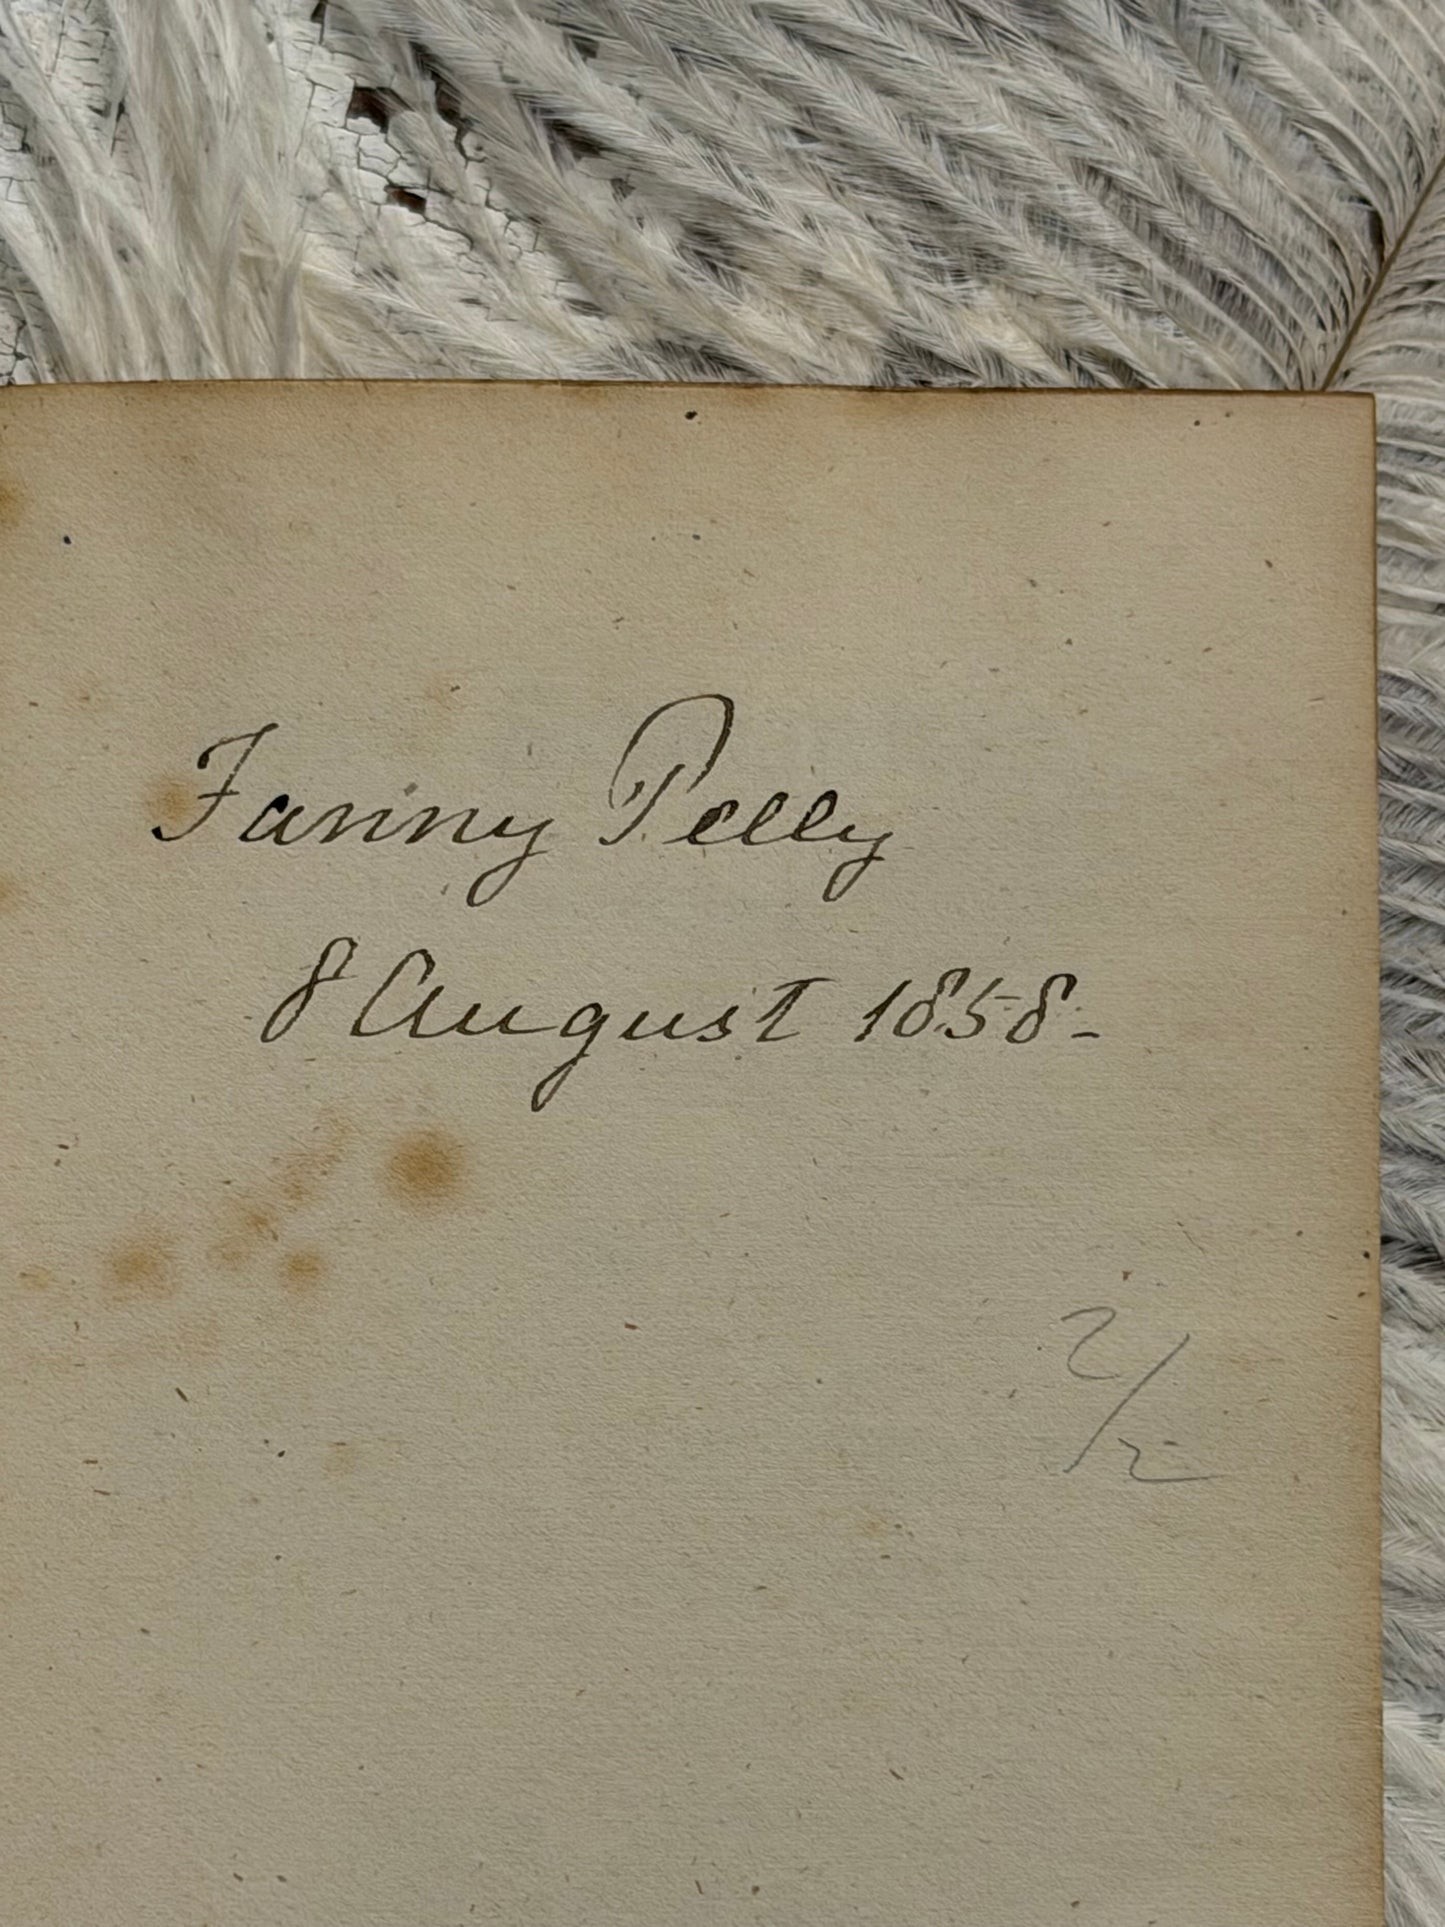 Fanny Pelly
8 August 1858-
2/2